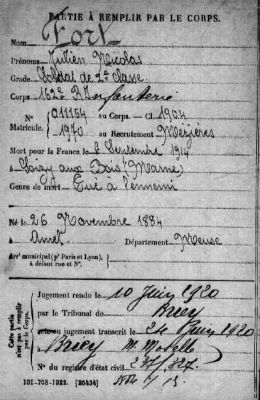 PARTIE À REMPLIR PAR LE CORPS.
Nom Fort
Prénoms Julien Nicolas
Grade Soldat de 2e classe
Corps 162e Rt Infanterie
N° 011154 au Corps. — Cl. 1904
Matricule. 1970 au Recrutement Mézières
Mort pour la France le 6 Septembre 1914
à Soizy aux Bois (Marne)
Genre de mort Tué à l'ennemi
Né le 26 Novembre 1884
à Amel Département Meuse
Arr' municipal (pr Paris et Lyon),
à défaut rue et N°.
Cette partie
n'est pas à remplir
par le Corps.
Jugement rendu le 10 Juin 1920
par le Tribunal de Briey
jugement transcrit le 24 Juin 1920
à Briey M. Moselle
N° du registre d'état civil 247/327.
101-708-1922. [26434]